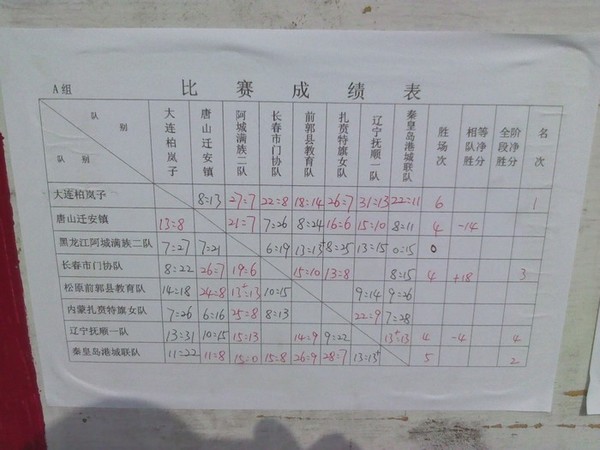 A组 比赛成绩表
队别 队别 大连柏岚子 唐山迁安镇 阿城满族二队 长春市门协队 前郭县教育队 扎赉特旗女队 辽宁抚顺一队 秦皇岛港城联队 胜场次 相等队净胜分 全阶段净胜分 名次
大连柏岚子 8=13 27=7 22=8 18=14 26=7 31=13 22=11 6 1
唐山迁安镇 13=8 21=7 7=26 8=24 16=6 15=10 8=11 4 -14
黑龙江阿城满族二队 7=27 7=21 6=19 13=13+ 8=25 13=15 0=15 0
长春市门协队 8=22 26=7 19=6 15=10 13=8 8=15 4 +18 3
松原前郭县教育队 14=18 24=8 13+=13 10=15 9=14 9=26
内蒙扎赉特旗女队 7=26 6=16 25=8 8=13 22=9 7=28
辽宁抚顺一队 13=31 10=15 15=13 14=9 9=22 13+=13 4 -4 4
秦皇岛港城联队 11=22 11=8 15=0 15=8 26=9 28=7 13=13+ 5 2